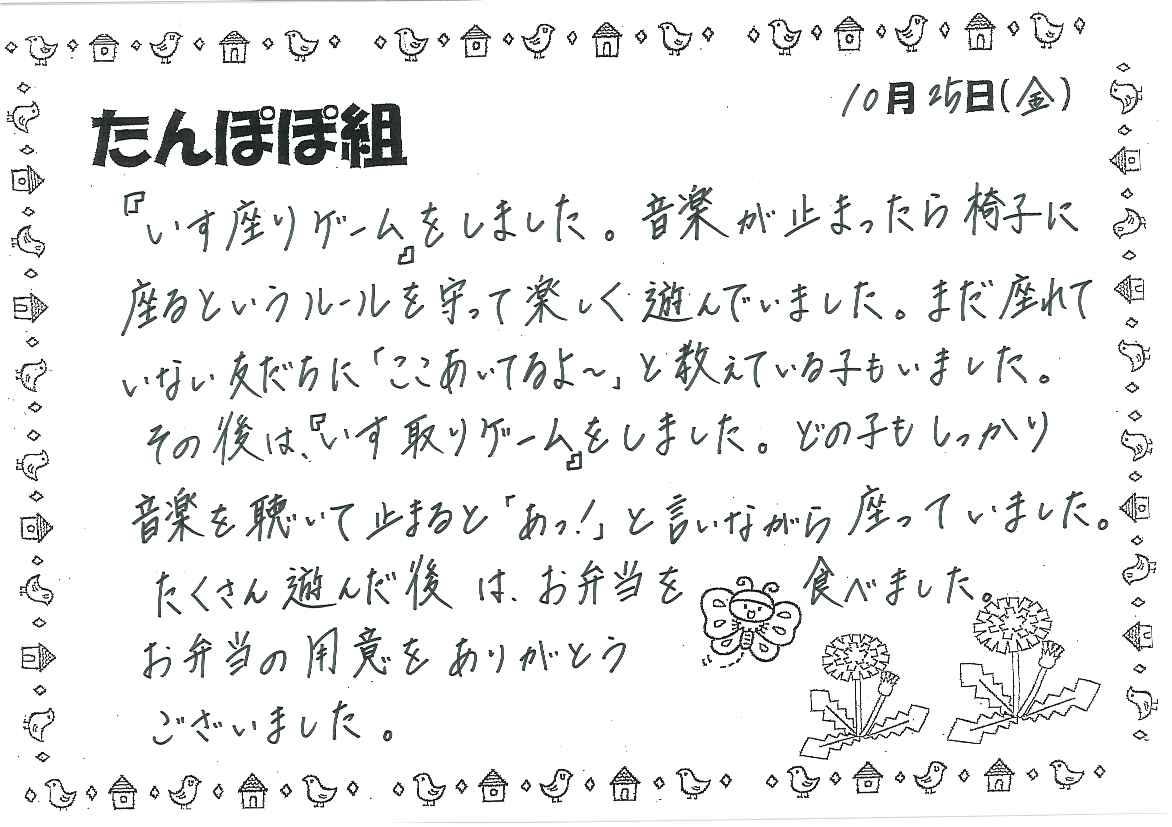 10月25日(金)
たんぽぽ組
『いす座りゲーム』をしました。音楽が止まったら椅子に
座るというルールを守って楽しく遊んでいました。まだ座れて
いない友だちに「ここあいてるよ〜」と教えている子もいました。
その後は、『いす取りゲーム』をしました。どの子もしっかり
音楽を聴いて止まると「あっ!」と言いながら座っていました。
たくさん遊んだ後は、お弁当を食べました。
お弁当の用意をありがとう
ございました。